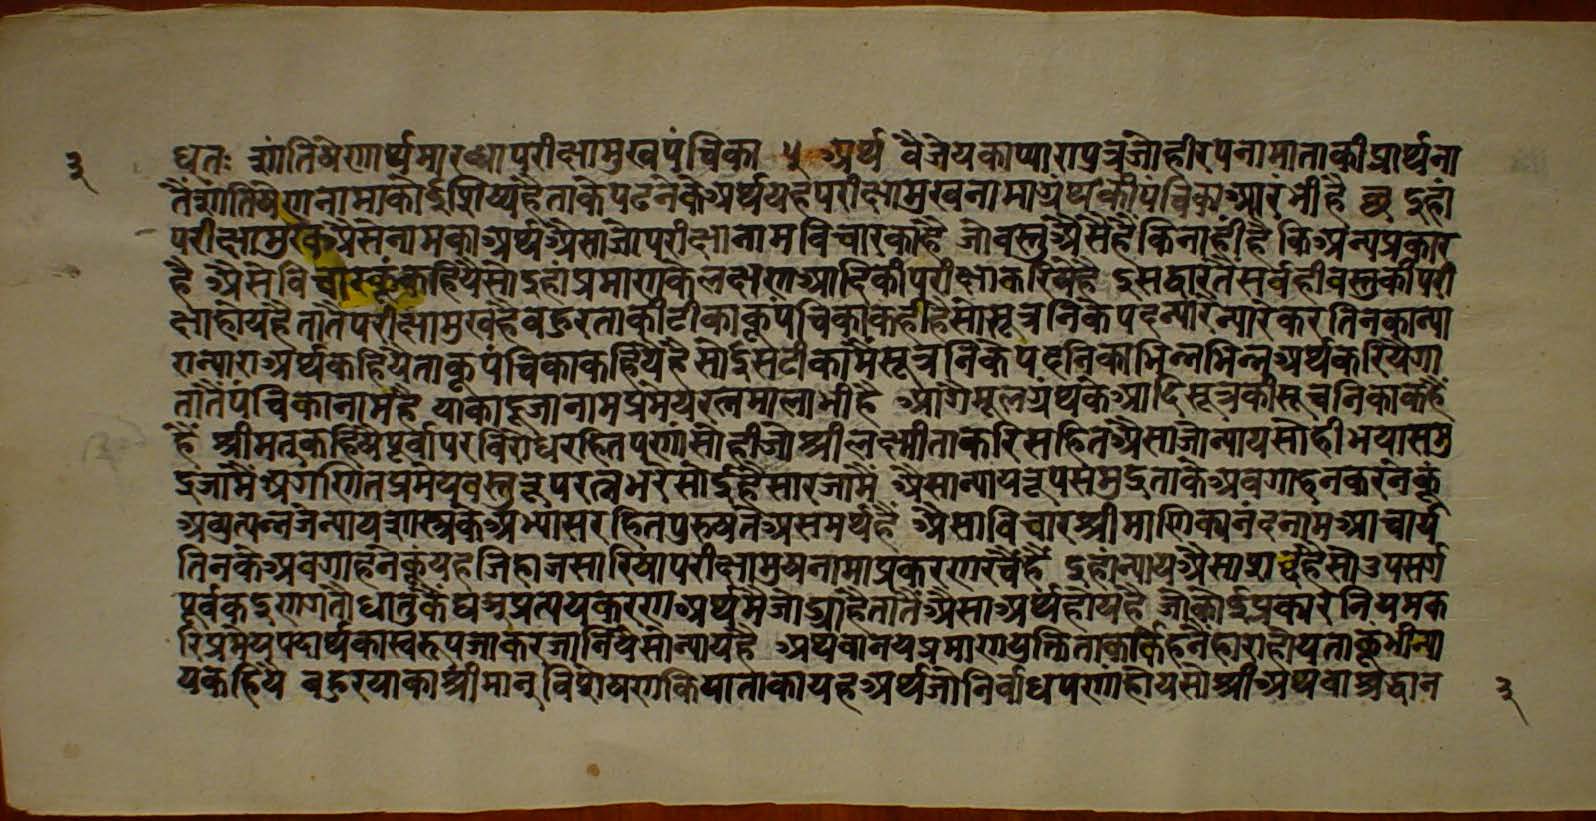 ३
धतः शांतिषेणार्थमारब्धा परीक्षामुखपंचिका ५ अर्थ वैजेयका प्यारा पुत्र जो हीरप नामा ताकी प्रार्थना
तैं शांतिषेण नामा कोई शिष्य है ताके पढनेके अर्थ यह परीक्षामुख नामा ग्रंथकी पंचिका आरंभी है इहां
परीक्षामुख ऐसे नामका अर्थ ऐसा जो परीक्षा नाम विचारका है जो वस्तु ऐसै है कि नाहीं है कि अन्य प्रकार
है ऐसे विचारकूं कहिये सो इहां प्रमाणके लक्षण आदिकी परीक्षा करिये है इस द्वारतै सर्व ही वस्तुकी परी
क्षा होय है तातै परीक्षामुख है बहुरि ताकी टीकाकूं पंचिका कही है सो सूत्रनिके पद न्यारे न्यारे करि तिनका न्या
रा न्यारा अर्थ कहिये ताकूं पंचिका कहिये है सो ईस टीकामै सूत्रनिके पदनिका भिन्न भिन्न अर्थ करियेगा
तातैं पंचिका नाम है याका दूजा नाम प्रमेयरत्नमाला भी है आगै मूलग्रंथके आदि सूत्रकी सूचनिका कहैं
हैं श्रीमत् कहिये पूर्वापरविरोधरहितपणा सो ही जो श्री लक्ष्मी ताकरि सहित ऐसा जो न्याय सो ही भया समु
द्र जामैं अगणित प्रमेय वस्तुरूप रत्न भरे सोई है सार जामैं ऐसा न्यायरूप समुद्र ताके अवगाहन करनेकूं
अव्युत्पन्न जे न्यायशास्त्रके अभ्यासरहित पुरुष ते असमर्थ है ऐसा विचार श्री माणिक्यनंद नाम आचार्य
तिनके अवगाहनेकूं यह जिहाज सारिषा परीक्षामुख नामा प्रकरण रचै है इहां न्याय ऐसा शब्द है सो उपसर्ग
पूर्वक इण गतौ धातुकै घञ् प्रत्यय करण अर्थमै जोग्या है तातैं ऐसा अर्थ होय है जो कोई प्रकारे नियमक
रि प्रमेय पदार्थका स्वरूप जाकर जानिये सो न्याय है अथवा नय प्रमाण युक्ति ताका कहनेहारा होय ताकूं भी न्या
य कहिये बहुरि याका श्रीमान् विशेषण किया ताका यह अर्थ जो निर्बाधपणां होय सो श्री अथवा श्रद्धान
३